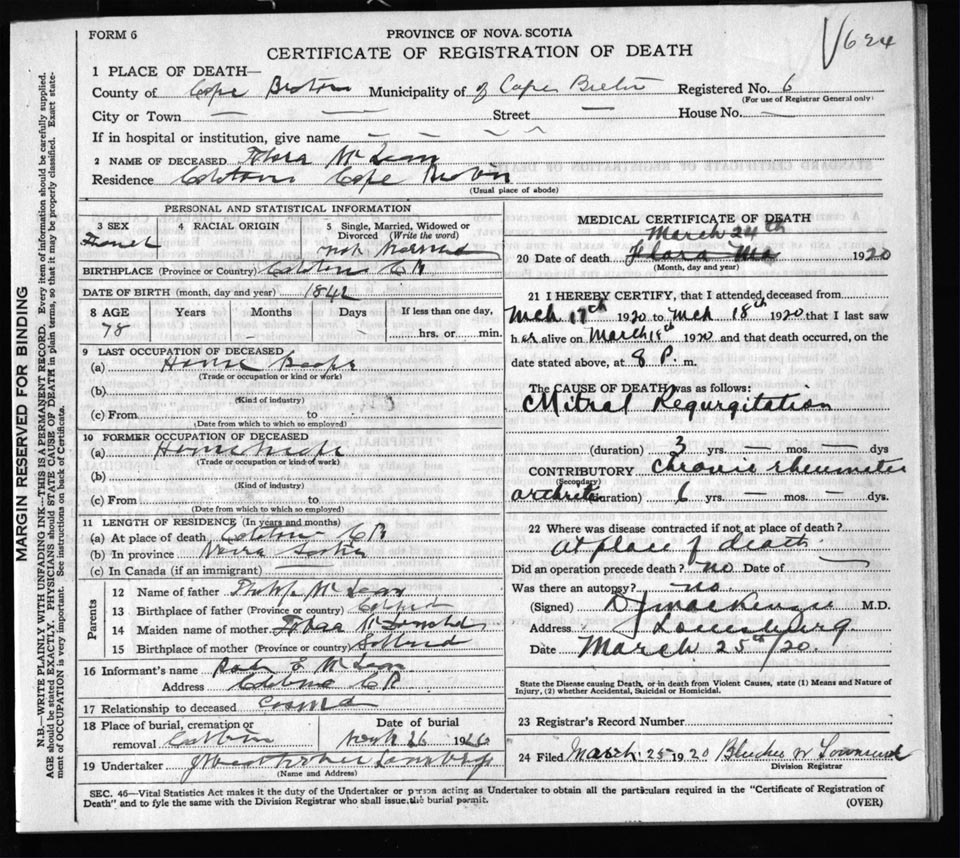 FORM 6
PROVINCE OF NOVA SCOTIA
CERTIFICATE OF REGISTRATION OF DEATH
624
1 PLACE OF DEATH—
County of Cape Breton Municipality of Cape Breton Registered No. 6
(For use of Registrar General only)
City or Town — Street — House No. —
If in hospital or institution, give name — — —
2 NAME OF DECEASED Flora McLean
Residence Cape Breton
(Usual place of abode)
PERSONAL AND STATISTICAL INFORMATION
3 SEX 4 RACIAL ORIGIN 5 Single, Married, Widowed or Divorced (Write the word)
not Married
BIRTHPLACE (Province or Country) C B
DATE OF BIRTH (month, day and year) 1842
8 AGE Years Months Days If less than one day,
78 - - ........hrs. or........min.
9 LAST OCCUPATION OF DECEASED
(a)
(Trade or occupation or kind or work)
(b)
(Kind of industry)
(c) From to
(Date from which to which so employed)
10 FORMER OCCUPATION OF DECEASED
(a)
(Trade or occupation or kind of work)
(b)
(Kind of industry)
(c) From to
(Date from which to which so employed)
11 LENGTH OF RESIDENCE (In years and months)
(a) At place of death C B
(b) In province Nova Scotia
(c) In Canada (if an immigrant) —
Parents
12 Name of father Philip McLean
13 Birthplace of father (Province or country)
14 Maiden name of mother Flora
15 Birthplace of mother (Province or country) Scotland
16 Informant's name McLean
Address C B
17 Relationship to deceased
18 Place of burial, cremation or removal
Date of burial
26 19
19 Undertaker
(Name and Address)
MEDICAL CERTIFICATE OF DEATH
March 24th
20 Date of death Flora Mc 1920
(Month, day and year)
21 I HEREBY CERTIFY, that I attended deceased from
Mch 17th 1920 to Mch 18th 1920 that I last saw
her alive on March 18th 1920 and that death occurred, on the
date stated above, at 8 P. m.
The CAUSE OF DEATH was as follows:
Mitral Regurgitation
(duration) 3 yrs. — mos. — dys
CONTRIBUTORY Chronic rheumatic
(Secondary)
arthritis (duration) 6 yrs. — mos. — dys.
22 Where was disease contracted if not at place of death?
At place of death
Did an operation precede death? no Date of —
Was there an autopsy? no
(Signed) D J MacKenzie M.D.
Address Louisburg
Date March 25th/20.
State the Disease causing Death, or in death from Violent Causes, state (1) Means and Nature of
Injury, (2) whether Accidental, Suicidal or Homicidal.
23 Registrar's Record Number
24 Filed March 25 1920 Townsend
Division Registrar
SEC. 46—Vital Statistics Act makes it the duty of the Undertaker or person acting as Undertaker to obtain all the particulars required in the "Certificate of Registration of
Death" and to fyle the same with the Division Registrar who shall issue the burial permit.
(OVER)
MARGIN RESERVED FOR BINDING
N.B.—WRITE PLAINLY WITH UNFADING INK—THIS IS A PERMANENT RECORD. Every item of information should be carefully supplied.
AGE should be stated EXACTLY. PHYSICIANS should STATE CAUSE OF DEATH in plain terms, so that it may be properly classified. Exact statement of OCCUPATION is very important. See instructions on back of Certificate.